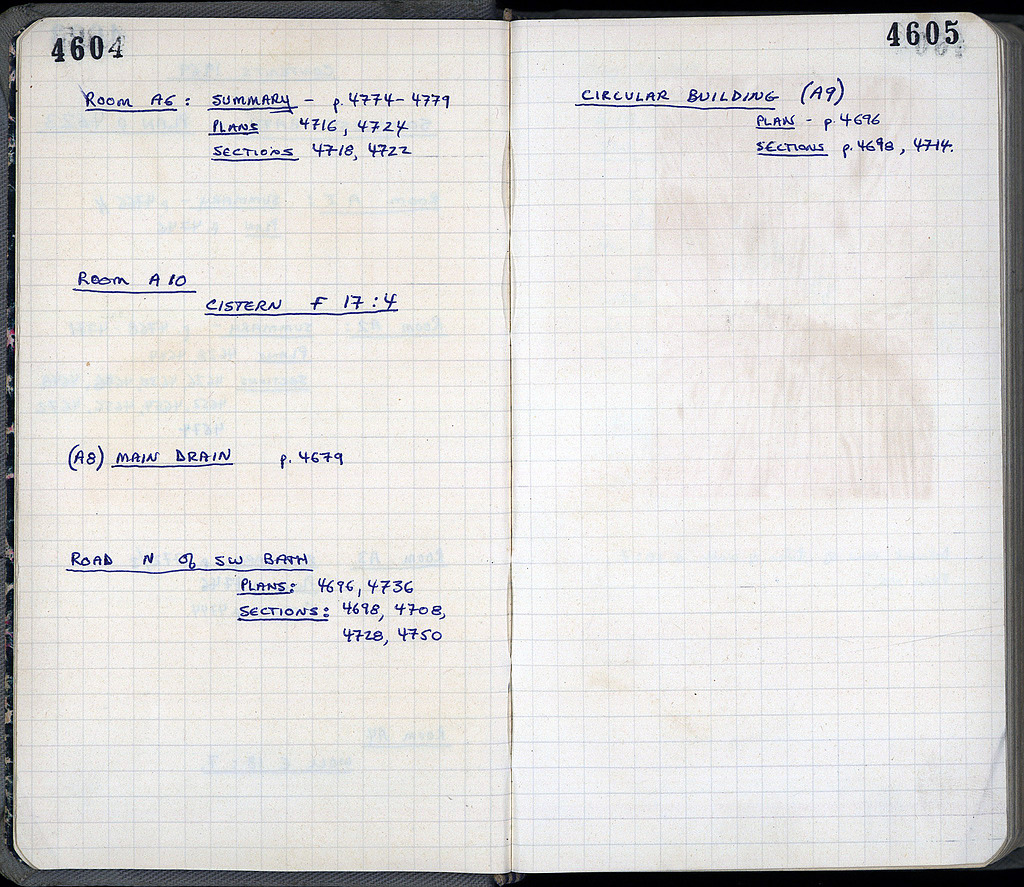 4604
Room A6: SUMMARY - p. 4774-4779
PLANS 4716, 4724
SECTIONS 4718, 4722
Room A 10
CISTERN F 17:4
(A8) MAIN DRAIN p. 4679
ROAD N of SW BATH
PLANS: 4696, 4736
SECTIONS: 4698, 4708,
4728, 4750
4605
CIRCULAR BUILDING (A9)
PLAN - p. 4696
SECTIONS p. 4698, 4714.